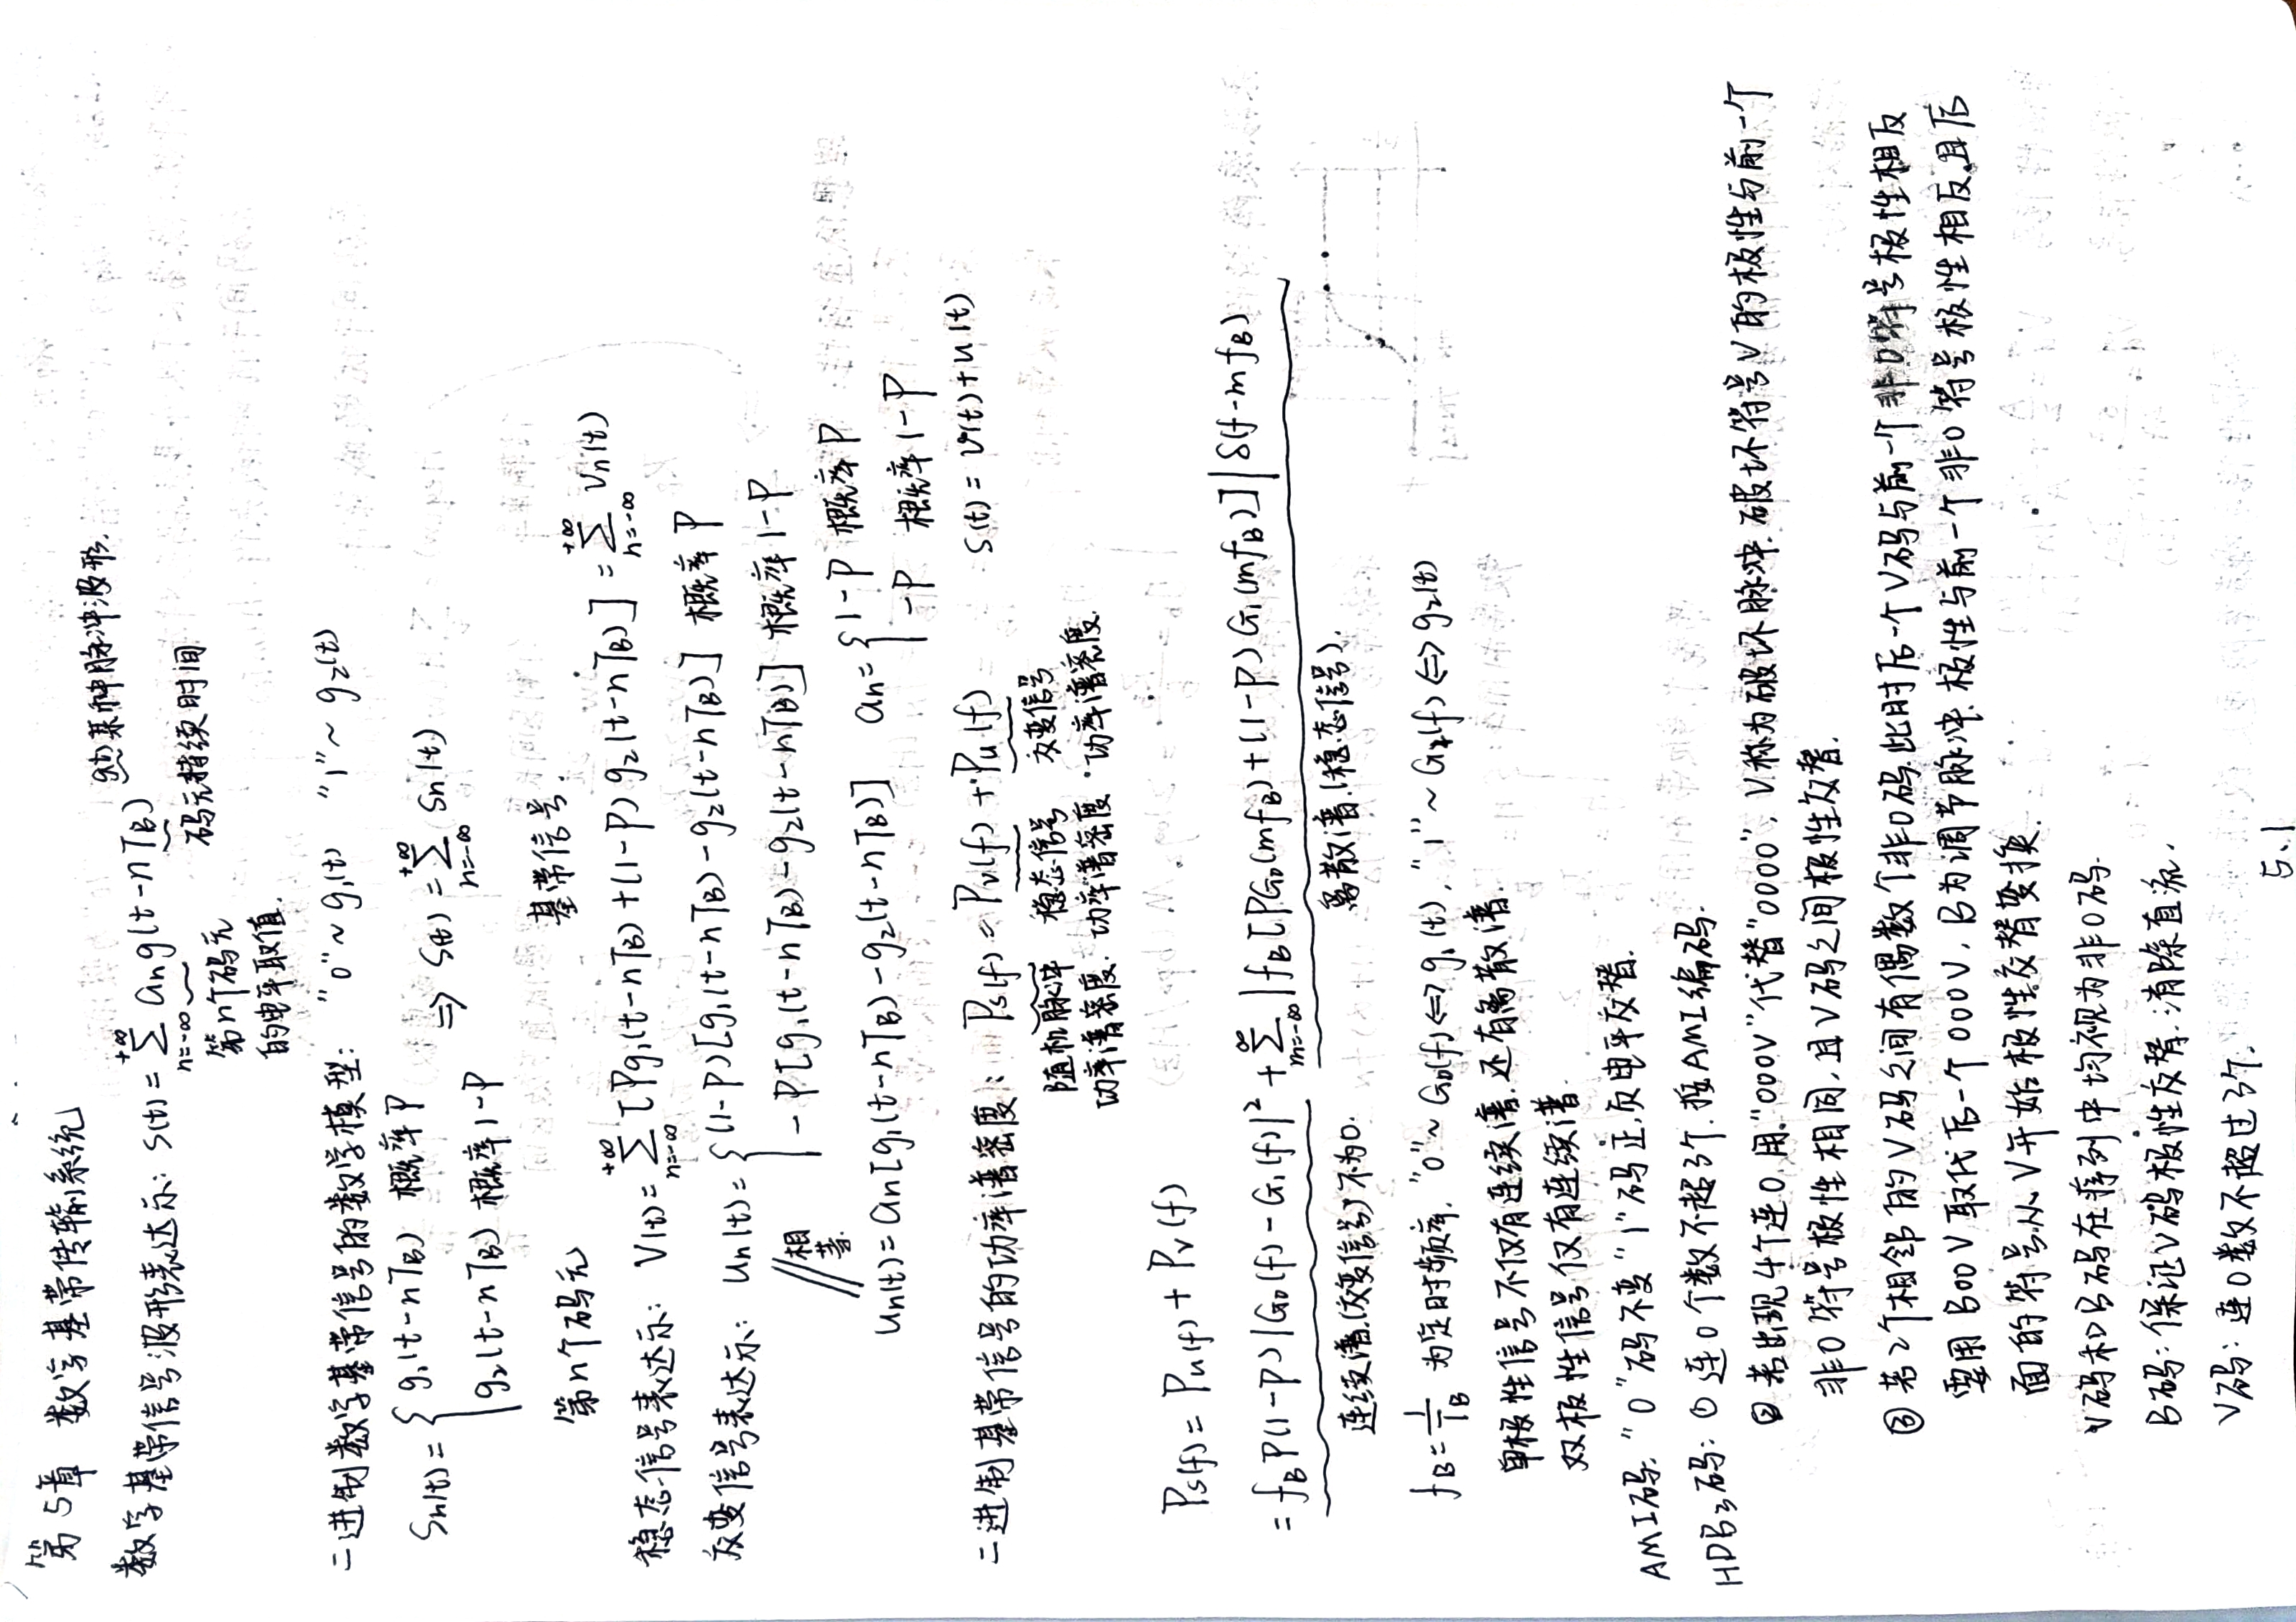 第5章 数字基带传输系统
数字基带信号波形表达示: S(t)=∑_{n=-∞}^{+∞} a_n g(t-nT_B) g(t)某种脉冲波形.
第n个码元的电平取值.
码元持续时间
二进制数字基带信号的数学模型: "0"~g₁(t) "1"~g₂(t)
S_n(t)={ g₁(t-nT_B) 概率P
g₂(t-nT_B) 概率1-P
⇒ S(t)=∑_{n=-∞}^{+∞} S_n(t)
第n个码元 基带信号.
稳态信号表达示: V(t)=∑_{n=-∞}^{+∞}[Pg₁(t-nT_B)+(1-P)g₂(t-nT_B)]=∑_{n=-∞}^{+∞} V_n(t)
交变信号表达示: u_n(t)={ (1-P)[g₁(t-nT_B)-g₂(t-nT_B)] 概率P
-P[g₁(t-nT_B)-g₂(t-nT_B)] 概率1-P
//相等.
u_n(t)=a_n[g₁(t-nT_B)-g₂(t-nT_B)] a_n={ 1-P 概率P
-P 概率1-P
二进制基带信号的功率谱密度: P_s(f)=P_v(f)+P_u(f) S(t)=v(t)+u(t)
随机脉冲 稳态信号 交变信号
功率谱密度. 功率谱密度 功率谱密度.
P_s(f)=P_u(f)+P_v(f)
=f_B P(1-P)|G₀(f)-G₁(f)|²+∑_{m=-∞}^{∞}|f_B[PG₀(mf_B)+(1-P)G₁(mf_B)]|δ(f-mf_B)
连续谱.(交变信号)不为0. 离散谱.(稳态信号).
f_B=1/T_B 为定时频率. "0"~G₀(f)⇔g₁(t), "1"~G₁(f)⇔g₂(t)
单极性信号不仅有连续谱.还有离散谱.
双极性信号仅有连续谱.
AMI码. "0"码不变"1"码正,负电平交替.
HDB₃码: ① 连0个数不超3个.按AMI编码.
② 若出现4个连0.用"000V"代替"0000", V称为破坏脉冲.破坏符号V的极性与前一个
非0符号极性相同,且V码之间极性交替.
③ 若2个相邻的V码之间有偶数个非0码.此时后一个V码与前一个非0符号极性相反
要用B00V取代后一个000V, B为调节脉冲.极性与前一个非0符号极性相反.且后
面的符号从V开始极性交替变换.
V码和B码在序列中均视为非0码.
B码: 保证V码极性交替.消除直流.
V码: 连0数不超过3个.
5.1